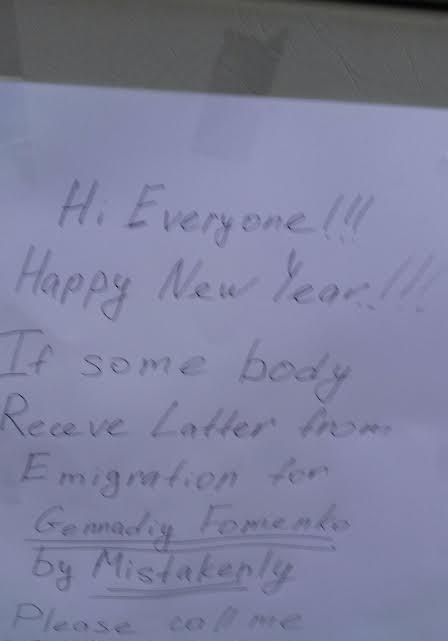 Hi Everyone!!!
Happy New Year!!!
If some body
Receve Latter from
Emigration for
Gennadiy Fomenko
by Mistakenly
Please call me